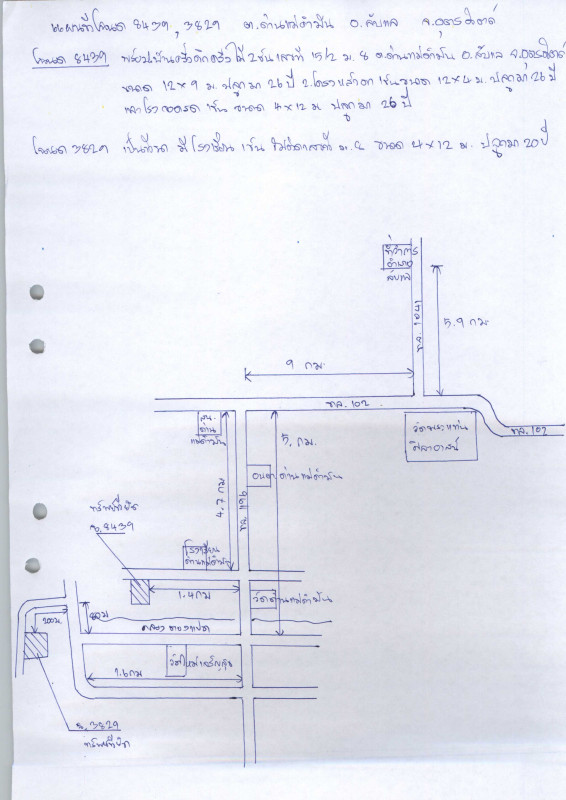 แผนที่โฉนด 8439, 3829 ต.ด่านแม่คำมัน อ.ลับแล จ.อุตรดิตถ์
โฉนด 8439 พร้อมบ้านครึ่งตึกครึ่งไม้ 2 ชั้น เลขที่ 15/2 ม. 8 ต.ด่านแม่คำมัน อ.ลับแล จ.อุตรดิตถ์
ขนาด 12×9 ม. ปลูกมา 26 ปี 2. ขนาด 12×4 ม. ปลูกมา 26 ปี
และโรงจอดรถ ขนาด 4×12 ม. ปลูกมา 26 ปี
โฉนด 3829 เป็นที่ มีโรงเรือน 1 ชั้น ไม่มีเลขที่ ม. ขนาด 4×12 ม. ปลูกมา 20 ปี
ที่ว่าการ
อำเภอ
ลับแล
ทล. 1041
5.9 กม.
9 กม.
ทล. 102
ทล. 102
สภ.
ด่าน
แม่คำมัน
5. กม.
วัดพระแท่น
ศิลาอาสน์
4.7 กม
ทล. 1196
อบต. ด่านแม่คำมัน
ทรัพย์ที่ยึด
ฉ. 8439
โรงเรียน
ด่านแม่คำมัน
1.4 กม
วัดด่านแม่คำมัน
200 ม.
คลอง
วัดใหม่เจริญสุข
1.6 กม
ฉ. 3829
ทรัพย์ที่ยึด